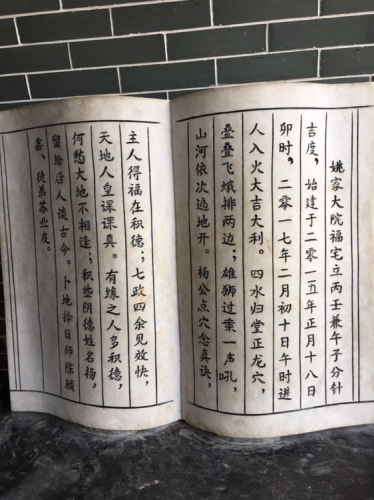 姚家大院福宅立丙壬兼午子分针
吉度，始建于二零一五年正月十八日
卯时，二零一七年二月初十日午时进
人入火大吉大利。四水归堂正龙穴，
叠叠飞蛾排两边；雄狮过案一声吼，
山河依次遍地开。杨公点穴愈真诀，
主人得福在积德；七政四余见效快，
天地人皇课课真。有缘之人多积德，
何愁大地不相逢；积些阴德姓名扬，
留给后人谈古今。卜地择日师陈顾
鑫，徒弟苏业友。